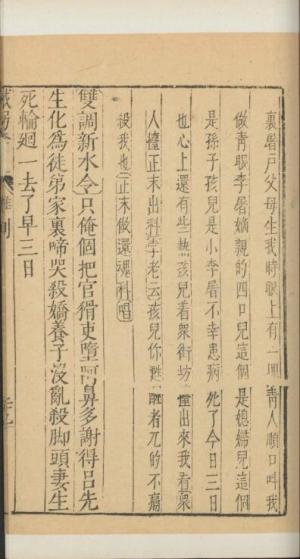 裏屠戶父母生我時眼上有一塊靑人順口叫我
做靑眼李屠嫡親的四口兒這個是媳婦兒這個
是孫子孩兒是小李屠不幸患病死了今日三日
也心上還有些熱孩兒看衆街坊擡出來我看
人擡正末出社李老云孩兒你甦醒者兀的不痛
殺我也正末做還魂社唱
雙調新水令只俺個把官猾吏墮阿鼻多謝得呂先
生化爲徒弟家裏啼哭殺嬌養子沒亂殺脚頭妻生
死輪廻一去了早三日